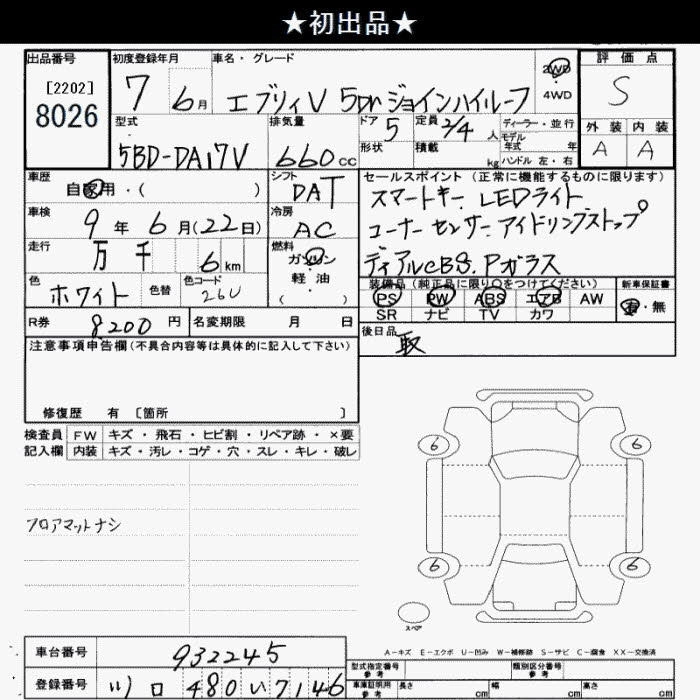 ★初出品★
出品番号
[2202]
8026
初度登録年月
7 6月
車名・グレード
エブリィV 5Dr ジョインハイルーフ
2WD
4WD
評価点
S
外装 内装
A A
型式
5BD-DA17V
排気量
660cc
ドア 5
形状
定員 2/4人
積載 kg
ディーラー・並行
モデル年式 年
ハンドル 左・右
車歴
自家用・( )
シフト
DAT
車検
9年6月(22日)
冷房
AC
走行
万千 6km
燃料
ガソリン
・
軽油
( )
色
ホワイト
色替
色コード
26U
R券 8200円
名変期限 月 日
セールスポイント(正常に機能するものに限ります)
スマートキー LEDライト
コーナーセンサー アイドリングストップ
ディアルCBS. Pガラス
装備品(純正品に限り○をつけてください)
PS PW ABS エアB AW
SR ナビ TV カワ
新車保証書
有・無
後日品
取
注意事項申告欄(不具合内容等は具体的に記入して下さい)
修復歴 有 〔箇所 〕
検査員記入欄
FW キズ・飛石・ヒビ割・リペア跡・×要
内装 キズ・汚レ・コゲ・穴・スレ・キレ・破レ
フロアマットナシ
6 6
6 6
スペア
A－キズ E－エクボ U－凹み W－補修跡 S－サビ C－腐食 XX－交換済
車台番号 932245
登録番号 480い7146
型式指定番号 参考
類別区分番号 参考
車庫証明用 参考
長さ cm 幅 cm 高さ cm